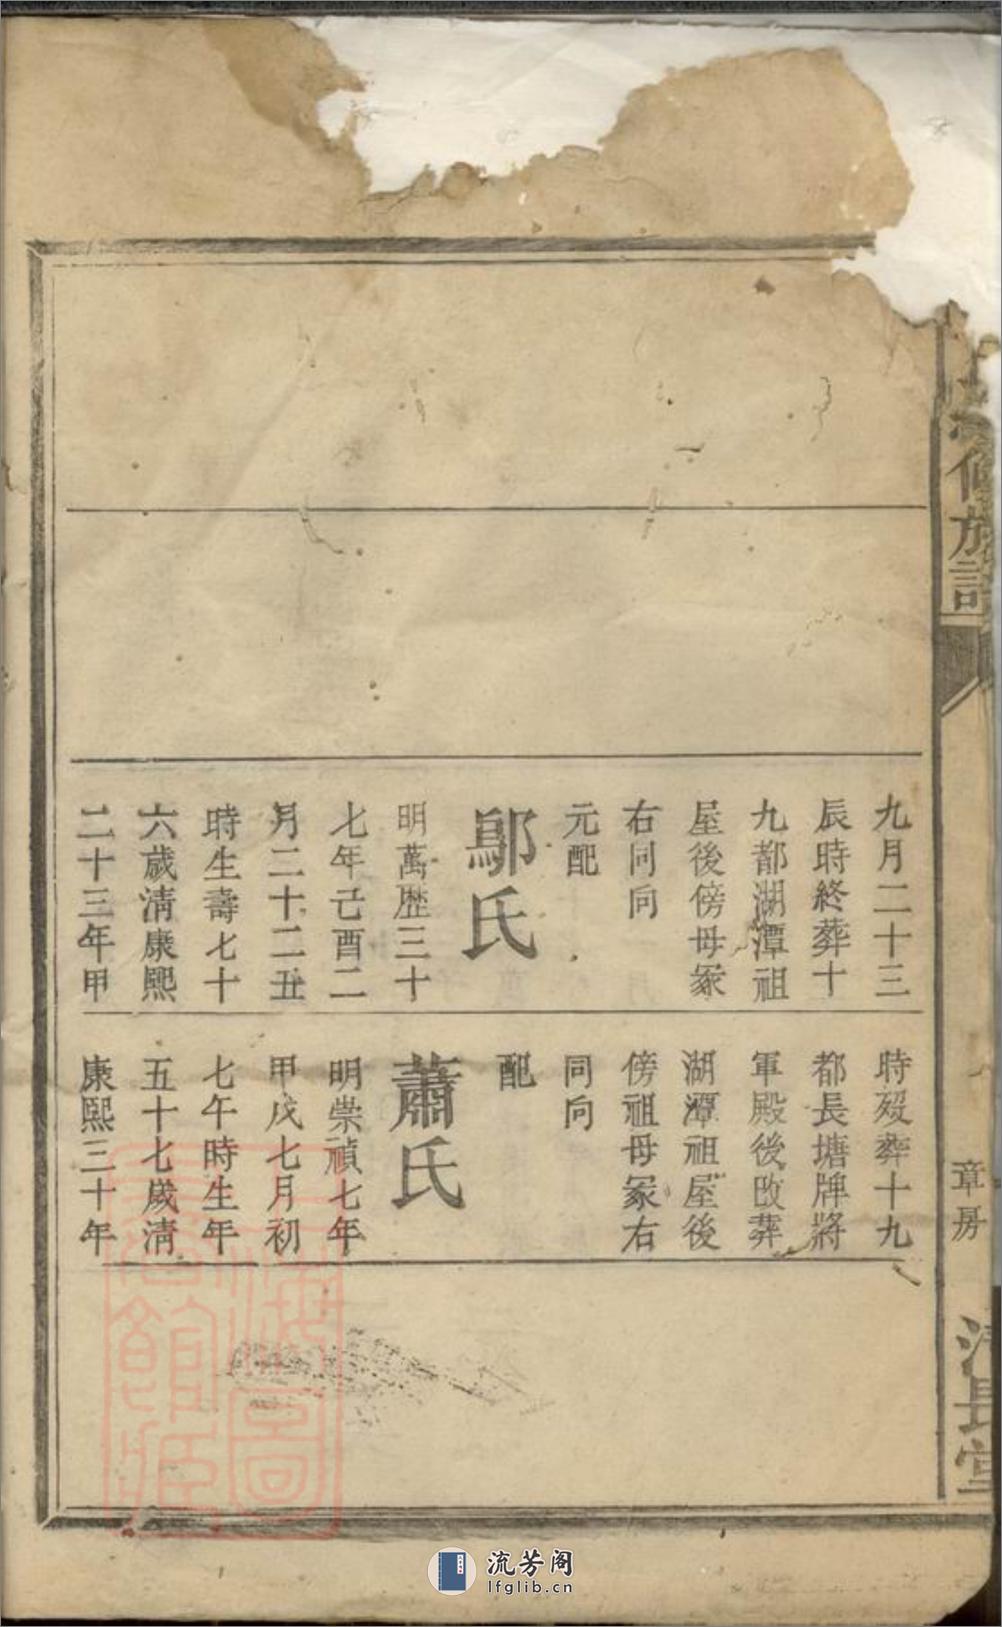 修族譜
章房
長堂
九月二十三
辰時終葬十
九都湖潭祖
屋後傍母冢
右同向
元配
鄔氏
明萬歴三十
七年己酉二
月二十二丑
時生壽七十
六歲淸康熙
二十三年甲
時歿葬十九
都長塘牌將
軍殿後改葬
湖潭祖屋後
傍祖母冢右
同向
配
蕭氏
明崇禎七年
甲戌七月初
七午時生年
五十七歲淸
康熙三十年
上海圖
書館藏
流芳阁
lfglib.cn